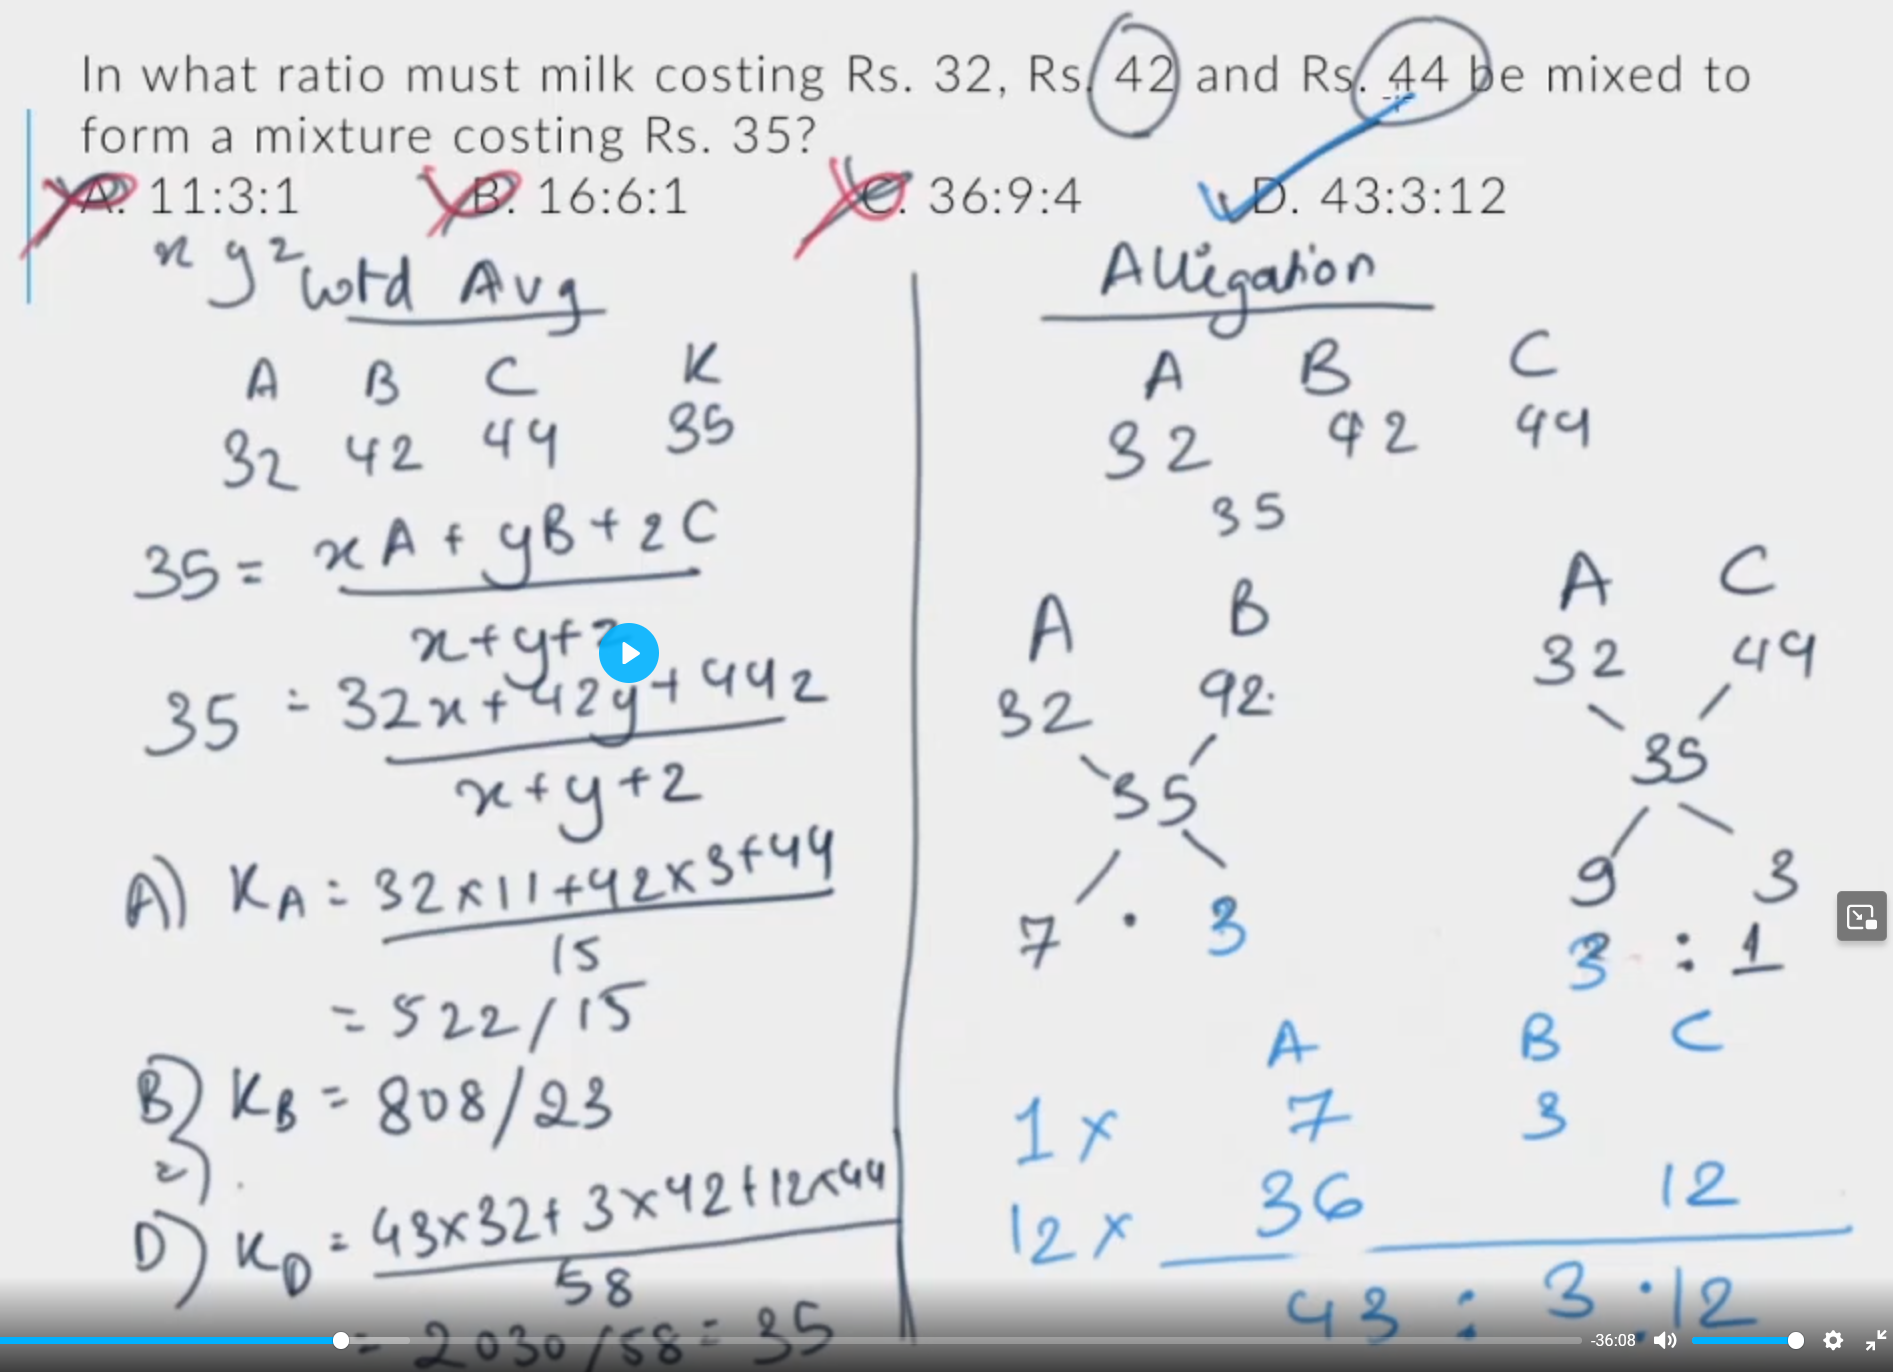 In what ratio must milk costing Rs. 32, Rs. 42 and Rs. 44 be mixed to
form a mixture costing Rs. 35?
A. 11:3:1 B. 16:6:1 C. 36:9:4 D. 43:3:12
x y z
Wtd Avg
A B C K
32 42 44 35
35 = xA + yB + zC
x+y+z
35 = 32x + 42y + 44z
x+y+z
A) KA = 32x11+42x3+44
15
= 522/15
B) KB = 808/23
D) KD = 43x32+ 3x42+12x44
58
= 2030/58 = 35
Alligation
A B C
32 42 44
35
A B
32 42
35
7 : 3
A C
32 44
35
9 3
3 : 1
A B C
1x 7 3
12x 36 12
43 : 3 : 12
-36:08